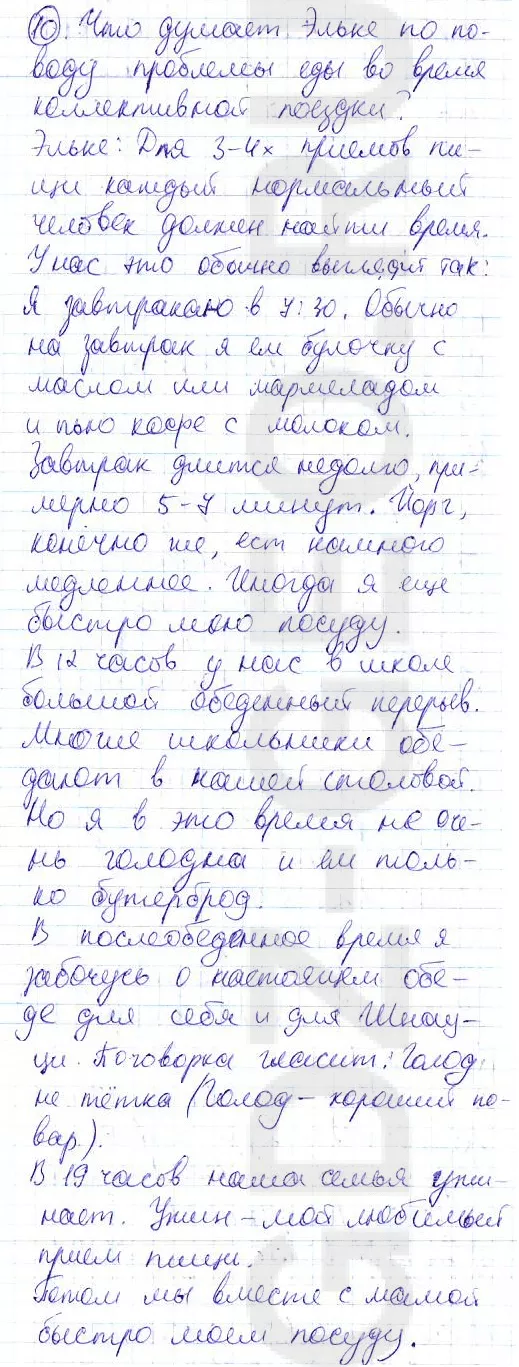 10. Что думает Эльке по по-
воду проблемы еды во время
коллективной поездки?
Эльке: Для 3-4х приемов пи-
щи каждый нормальный
человек должен найти время.
У нас это обычно выглядит так:
Я завтракаю в 7:30. Обычно
на завтрак я ем булочку с
маслом или мармеладом
и пью кофе с молоком.
Завтрак длится недолго, при-
мерно 5-7 минут. Йорг,
конечно же, ест намного
медленнее. Иногда я еще
быстро мою посуду.
В 12 часов у нас в школе
большой обеденный перерыв.
Многие школьники обе-
дают в нашей столовой.
Но я в это время не оче-
нь голодна и ем толь-
ко бутерброд.
В послеобеденное время я
забочусь о настоящем обе-
де для себя и для Шнау-
ци. Поговорка гласит: Голод
не тётка (Голод - хороший по-
вар.).
В 19 часов наша семья ужи-
нает. Ужин - мой любимый
прием пищи.
Потом мы вместе с мамой
быстро моем посуду.
GDZ-GEO.RU